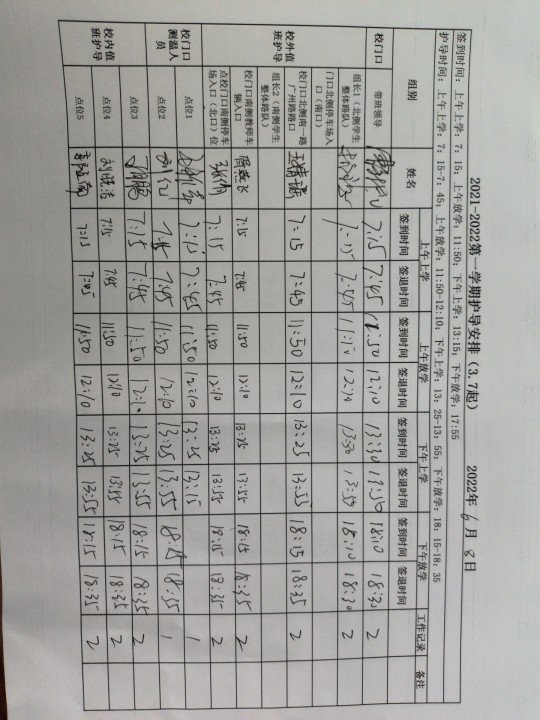 2021-2022第一学期护导安排（3.7起） 2022年 6 月 8 日
签到时间：上午上学：7：15，上午放学：11:50；下午上学：13:15；下午放学：17:55
护导时间：上午上学：7：15-7：45；上午放学：11:50-12:10；下午上学：13：25-13：55；下午放学：18：15-18：35
组别 姓名 上午上学 上午放学 下午上学 下午放学 工作记录 备注
签到时间 签退时间 签到时间 签退时间 签到时间 签退时间 签到时间 签退时间
校门口 带班领导 7:15 7:45 11:50 12:10 13:30 13:50 18:10 18:30 2
校外值班护导 组长1（北侧学生整体路队） 7:15 7:45 11:50 12:10 13:30 13:50 18:10 18:30 2
门口北侧停车场入口（南口）
校门口北侧南一路广州路路口 7:15 7:45 11:50 12:10 13:25 13:55 18:15 18:35 2
组长2（南侧学生整体路队）
校门口南侧教师车辆入口 7:15 7:45 11:50 12:10 13:25 13:55 18:15 18:35 2
点校门口南侧停车场入口（北口）位 7:15 7:45 11:50 12:10 13:25 13:55 18:15 18:35 2
校门口测温人员 点位1 7:15 7:45 11:50 12:10 13:25 13:15 1
点位2 刘 7:15 7:45 11:50 12:10 13:25 13:55 18:15 18:35 1
校内值班护导 点位3 丁鹏 7:15 7:45 11:50 12:10 13:25 13:55 18:15 18:35 2
点位4 刘 7:15 7:45 11:50 12:10 13:25 13:55 18:15 18:35 2
点位5 7:15 7:45 11:50 12:10 13:25 13:55 18:15 18:35 2